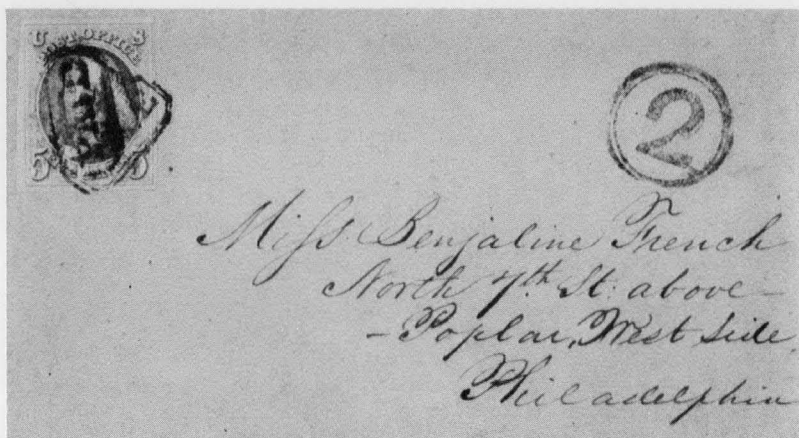 U S
POST OFFICE
5
2
Miſs Benjaline French
North 7th St: above –
– Poplar, West Side
Philadelphia